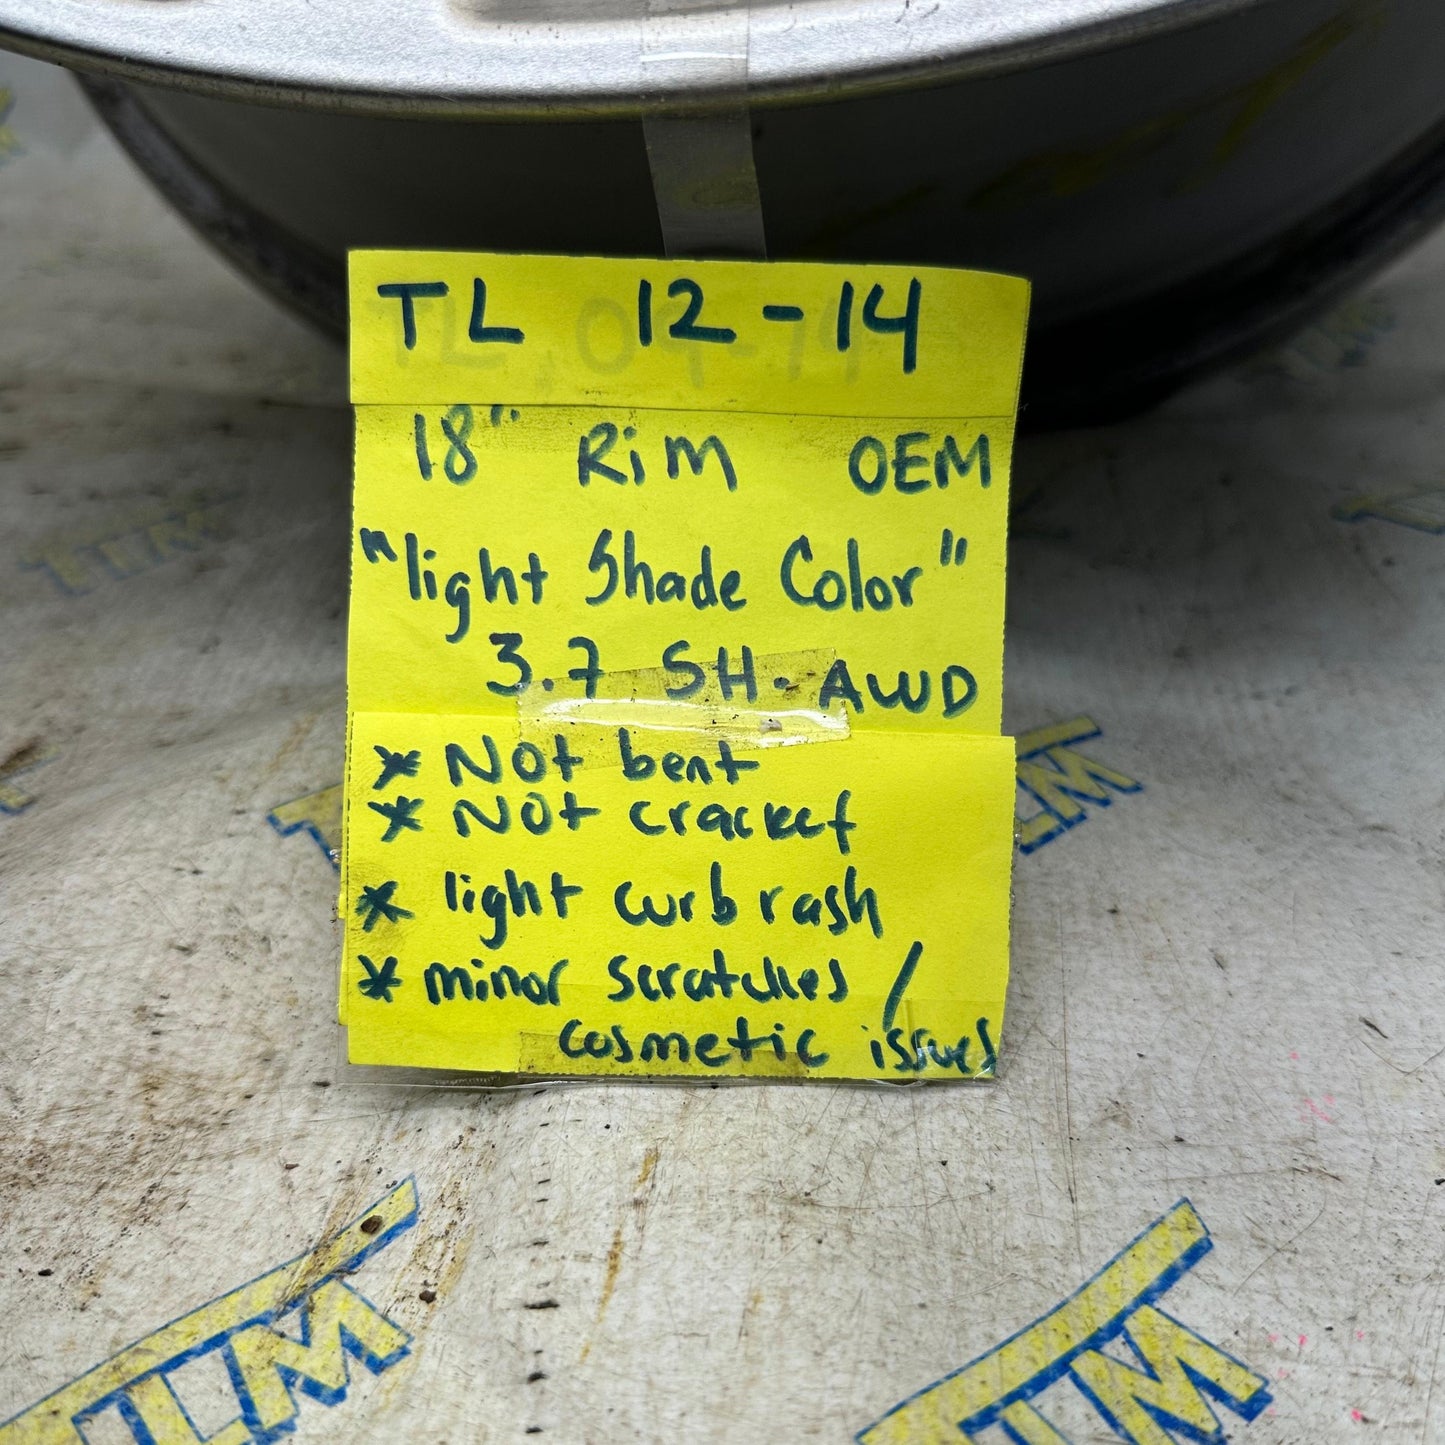 TL 12-14
18" Rim OEM
"light Shade Color"
3.7 SH-AWD
* Not bent
* Not cracket
* light curb rash
* minor scratches /
cosmetic issues
TLM
TLM
TLM
TLM